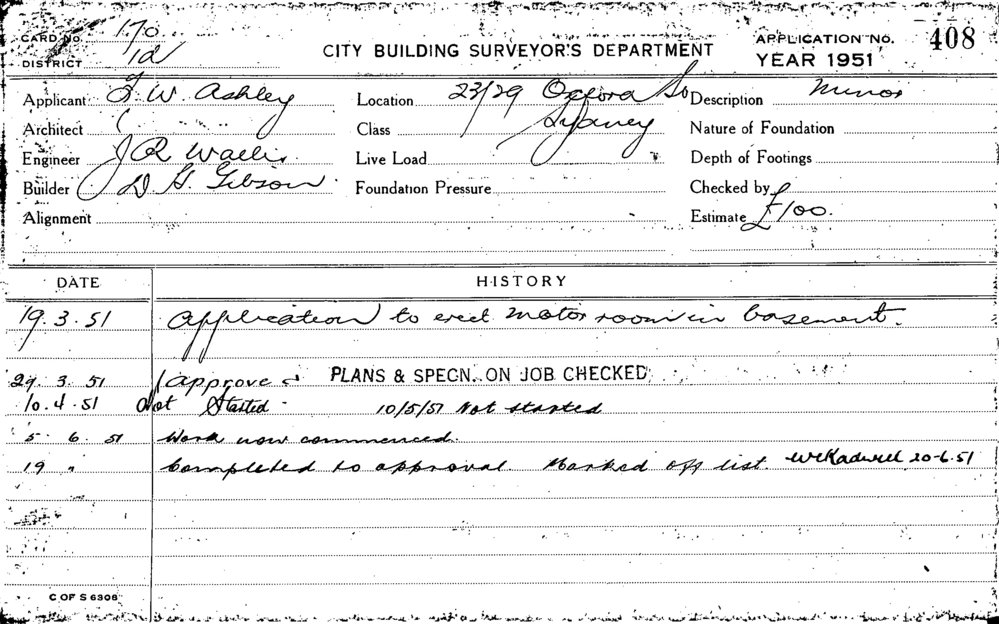 CARD No. 170
CITY BUILDING SURVEYOR'S DEPARTMENT
APPLICATION No. 408
DISTRICT 12
YEAR 1951
Applicant W. Ashley
Location 23/29 Oxford St
Description Minor
Architect
Class Sydney
Nature of Foundation
Engineer J R Wallis
Live Load
Depth of Footings
Builder D. G. Gibson.
Foundation Pressure
Checked by
Alignment
Estimate £100.
DATE HISTORY
19. 3. 51 Application to erect motor room in basement.
29. 3. 51 Approved PLANS & SPECN. ON JOB CHECKED
10. 4. 51 Not Started - 10/5/51 Not started
5. 6. 51 Work now commenced.
19 " Completed to approval. Marked off list. 20-6-51
C OF S 6308